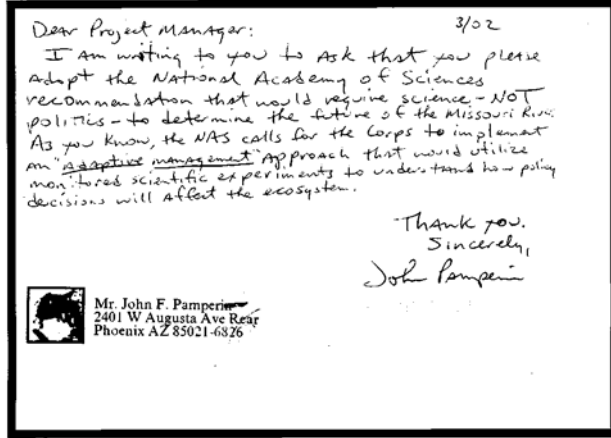 3/02
Dear Project Manager:
I Am writing to you to Ask that you please
Adopt the National Academy of Sciences
recommendation that would require science - NOT
politics - to determine the future of the Missouri River.
As you know, the NAS calls for the Corps to implement
an "Adaptive management" approach that would utilize
monitored scientific experiments to understand how policy
decisions will affect the ecosystem.
Thank you.
Sincerely,
John Pamperin
Mr. John F. Pamperin
2401 W Augusta Ave Rear
Phoenix AZ 85021-6826